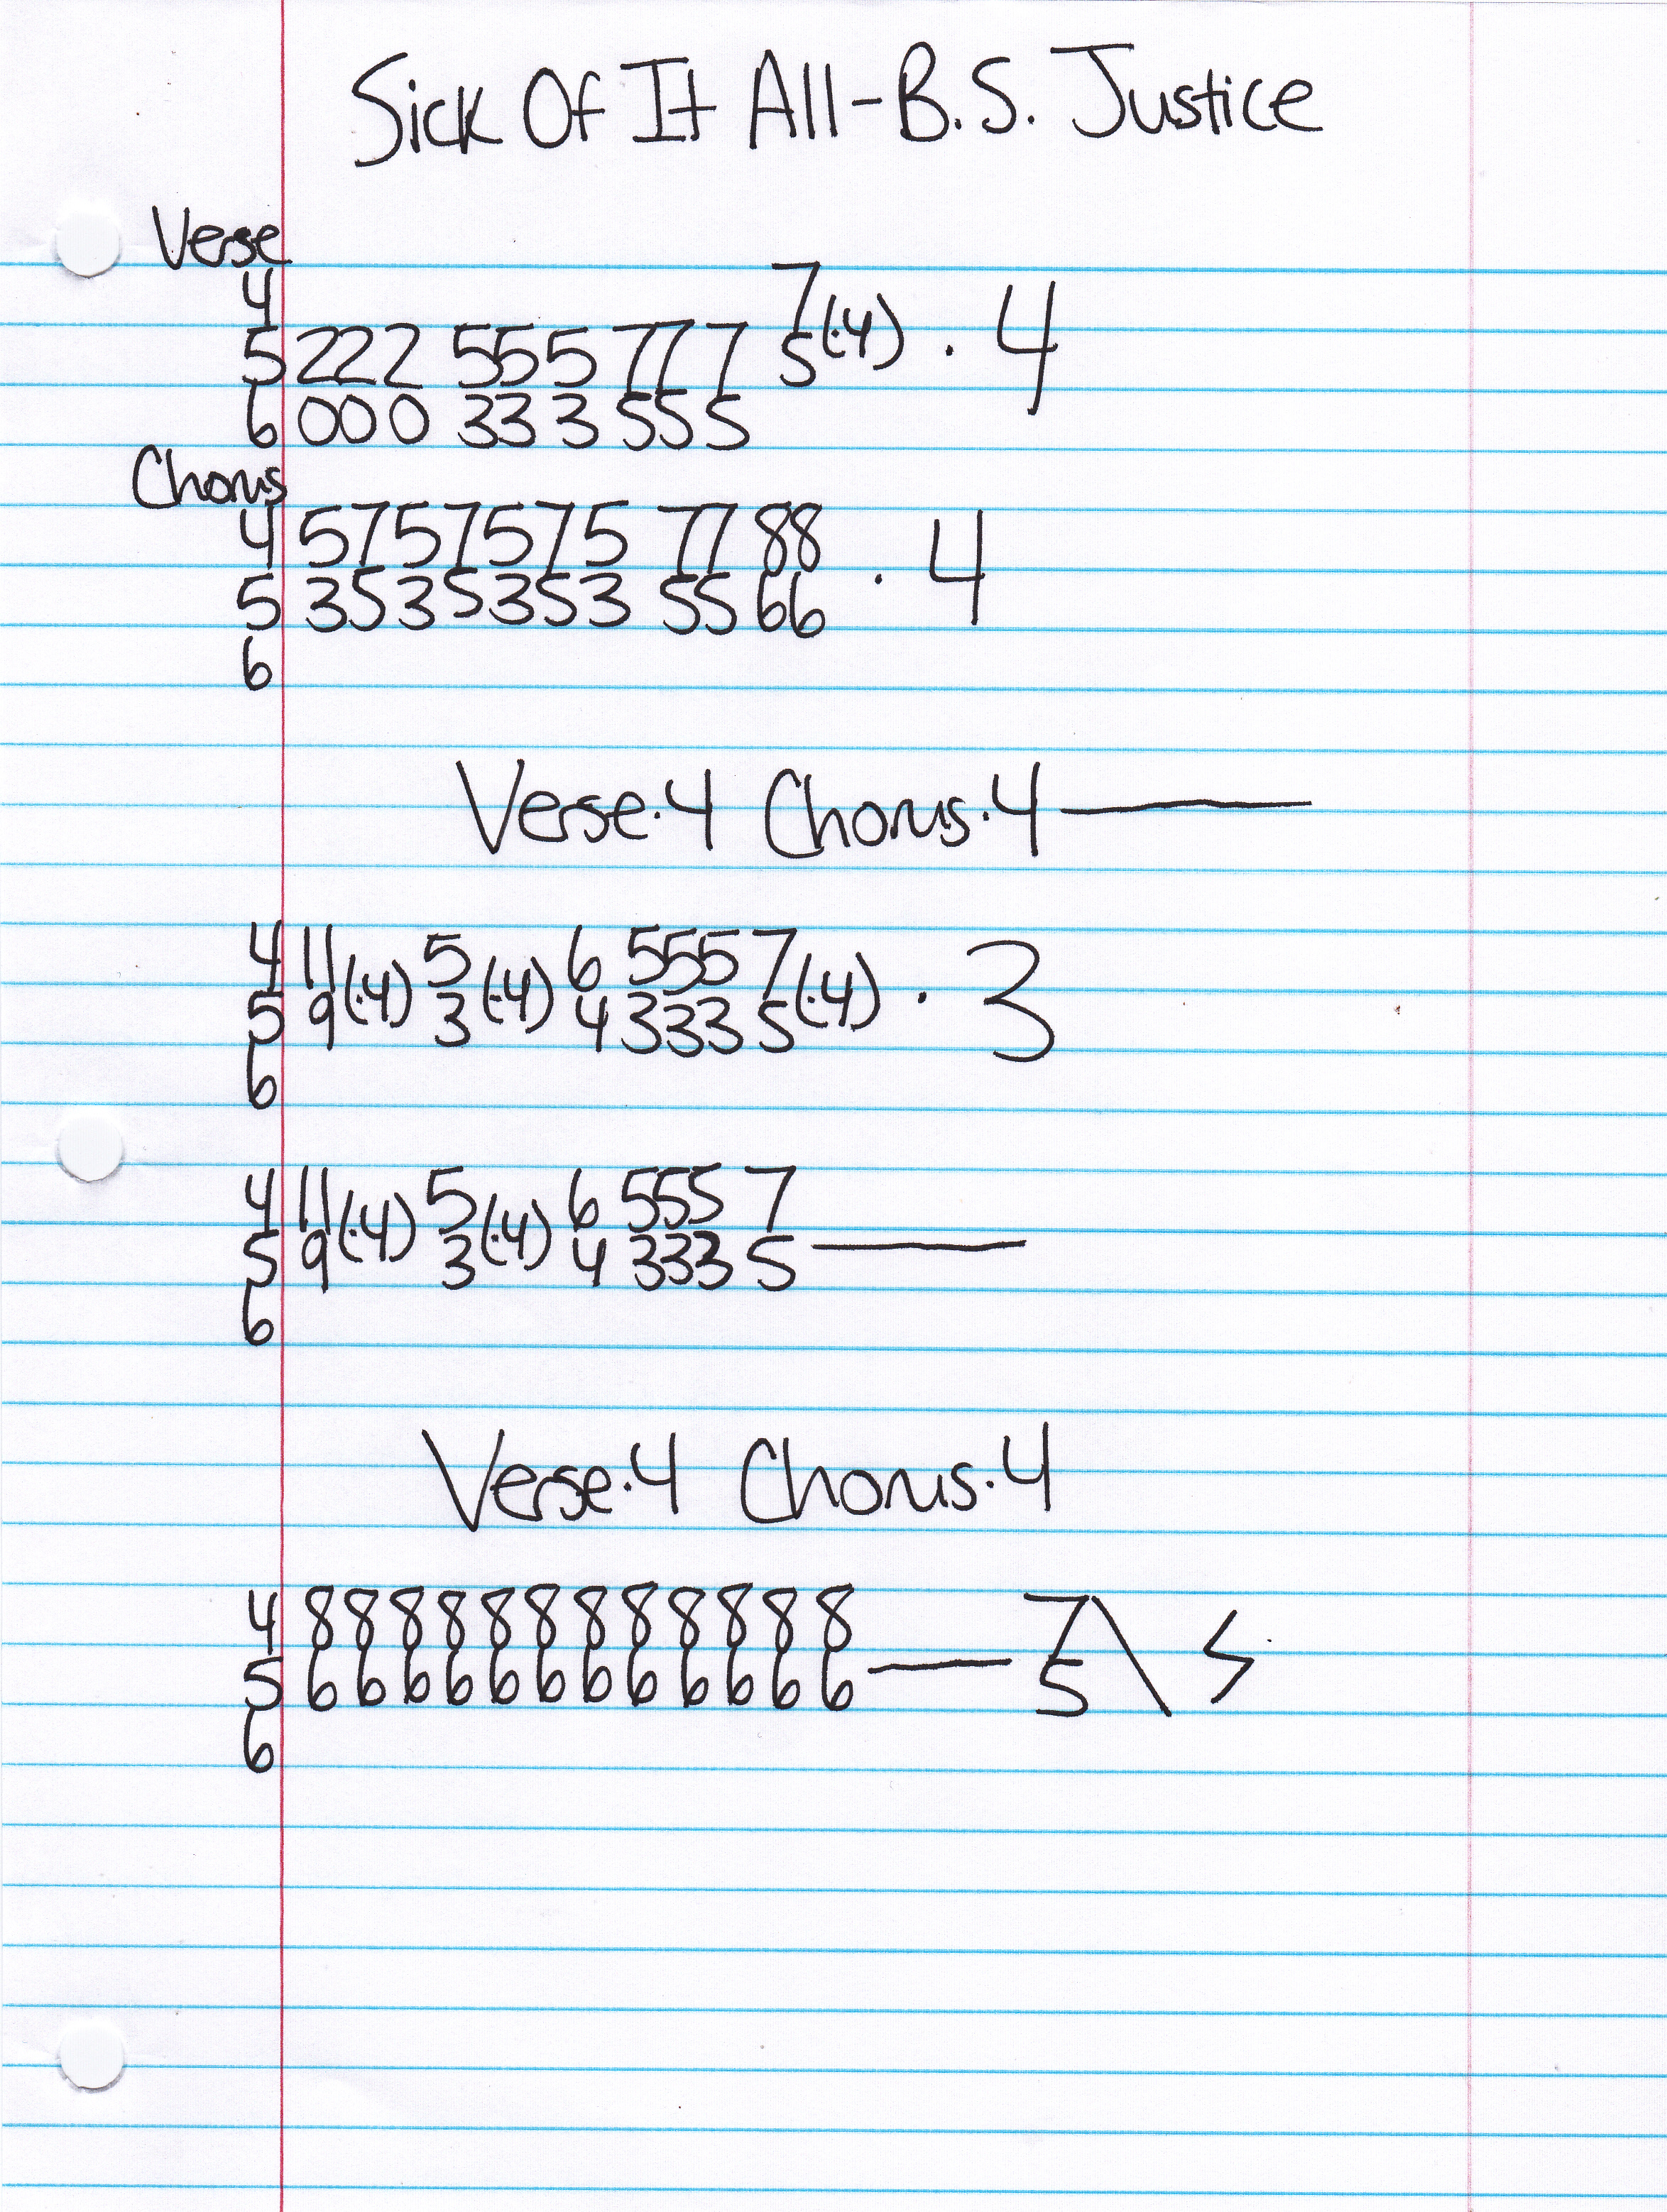 Sick Of It All-B.S. Justice
Verse
4 7
5 222 555 777 5(·4) · 4
6 000 333 555
Chorus
4 5757575 77 88
5 3535353 55 66 · 4
6
Verse·4 Chorus·4 ———
4 11(·4) 5(·4) 6 555 7(·4) · 3
5 9 3 4 333 5
6
4 11(·4) 5(·4) 6 555 7
5 9 3 4 333 5 ———
6
Verse·4 Chorus·4
4 888888888888 7\
5 666666666666 — 5
6